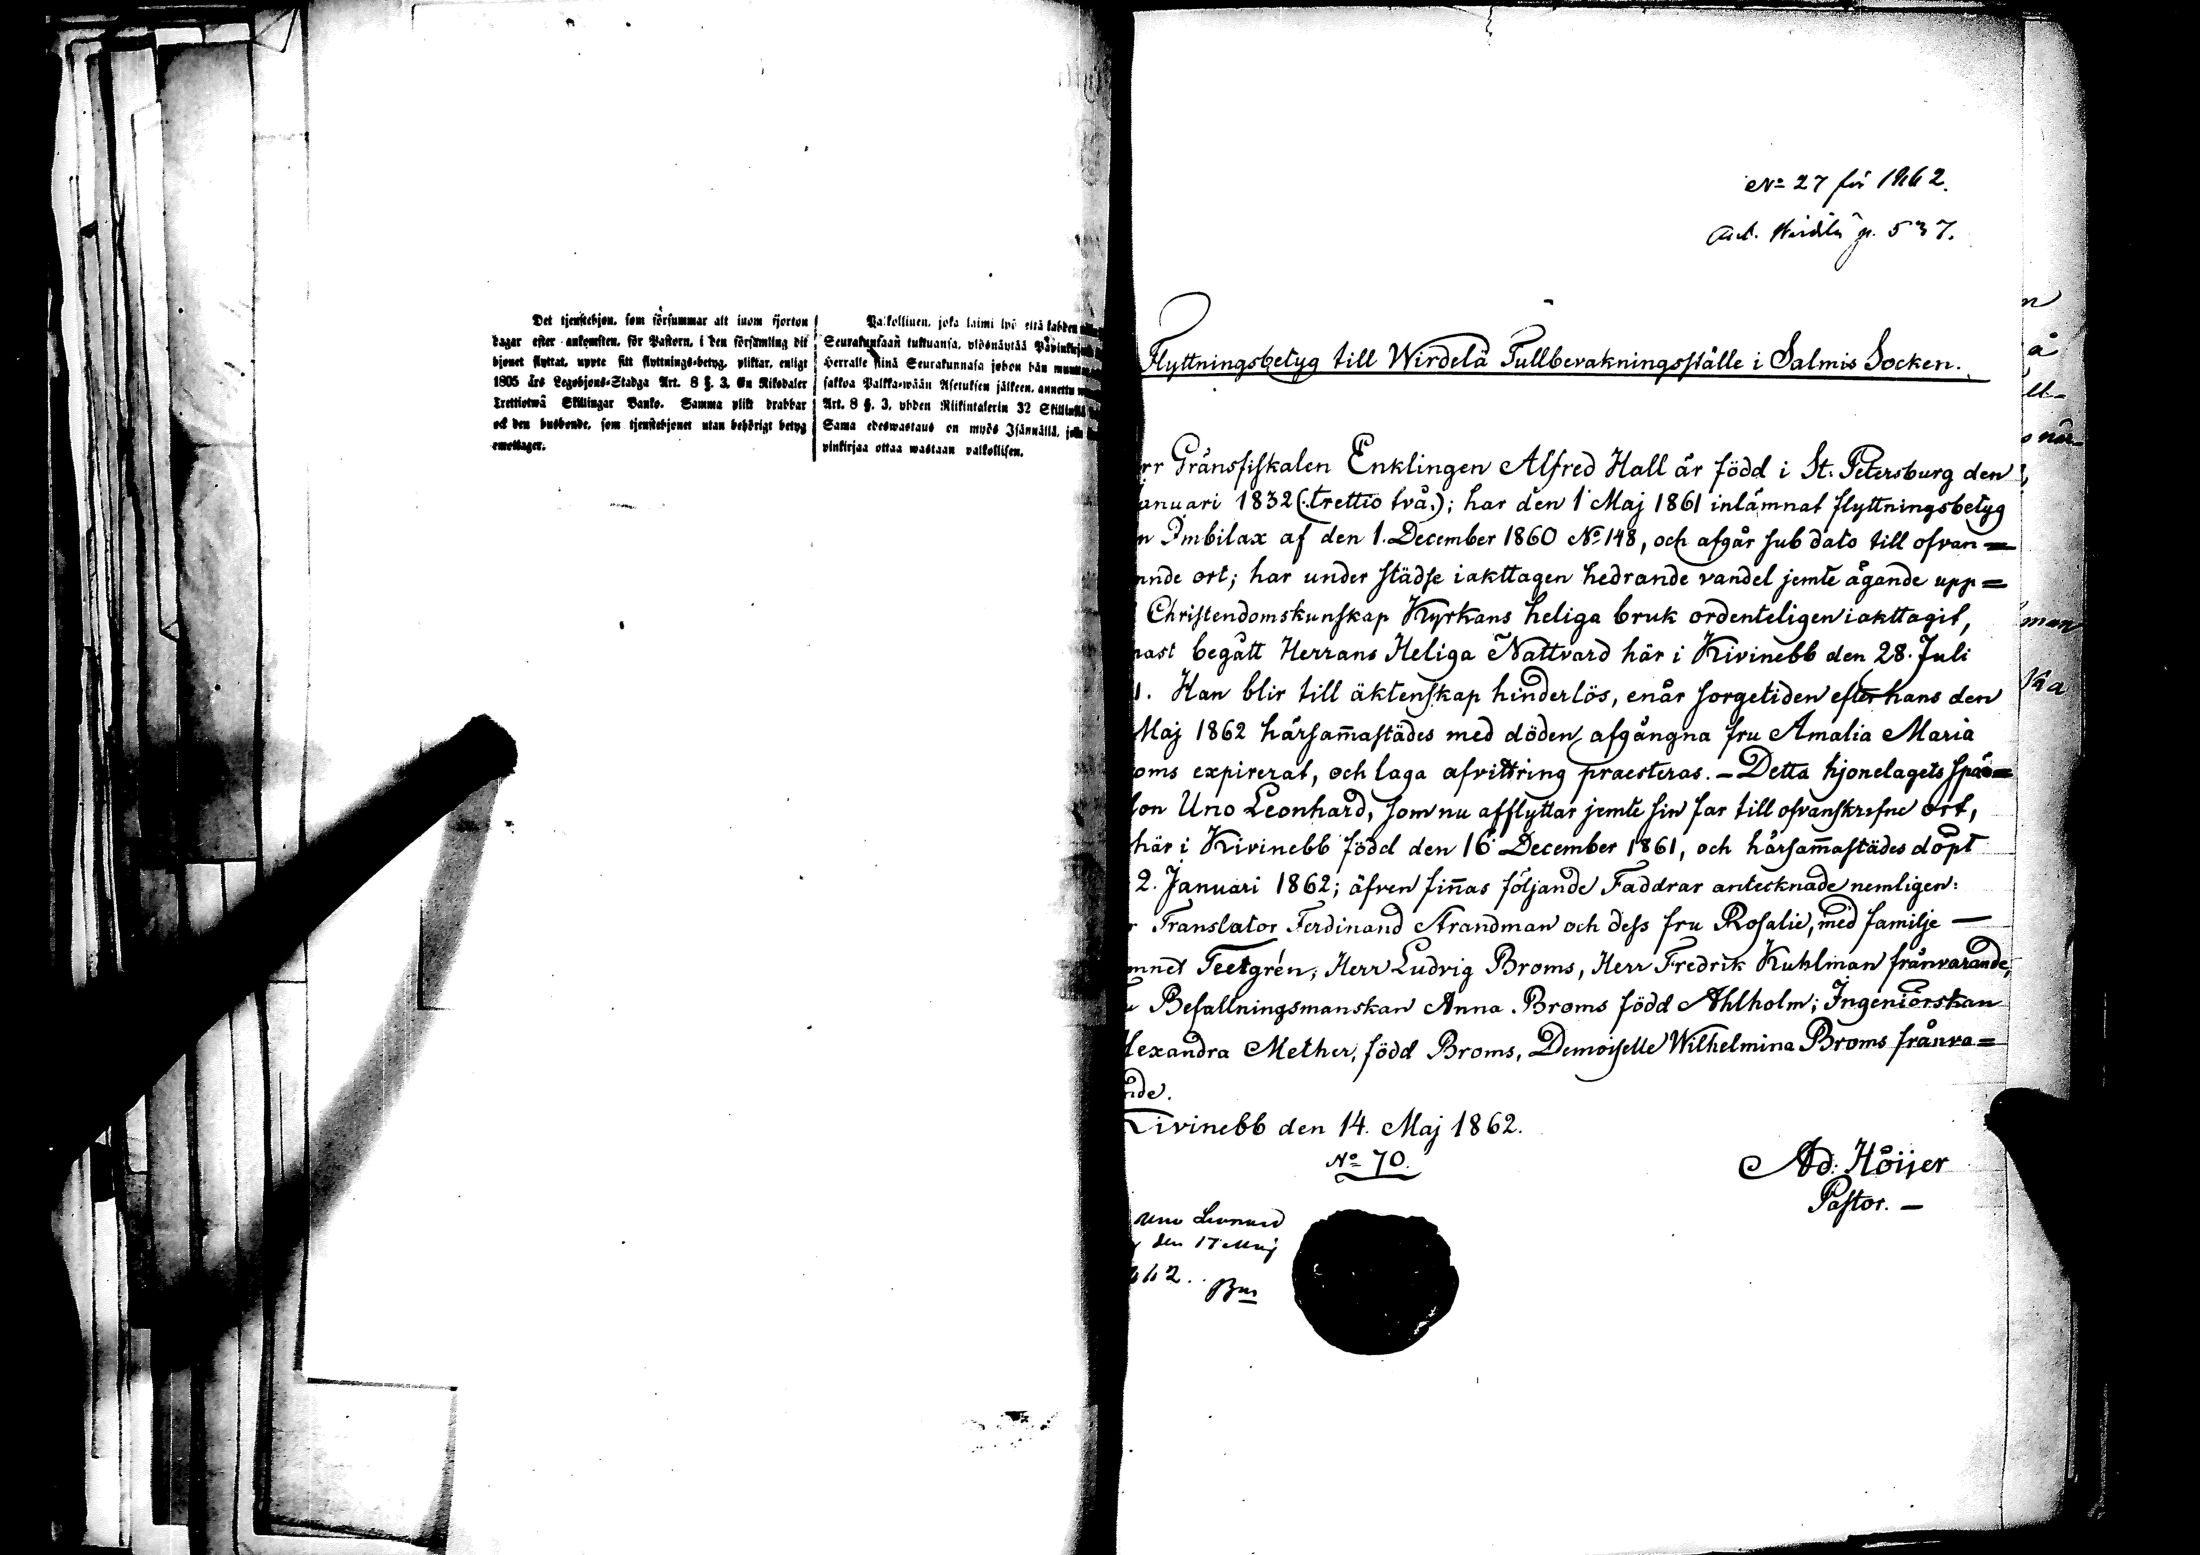 Det tjenstehjon, som försummar att inom fjorton
dagar efter ankomsten, för Pastorn, i den församling dit
hjonet flyttat, uppte sitt flyttnings-betyg, pliktar, enligt
1805 års Legohjons-Stadga Art. 8 §. 3. En Riksdaler
Trettiotwå Skillingar Banko. Samma plikt drabbar
ock den husbonde, som tjenstehjonet utan behörigt betyg
emottager.
Palkollinen, joka laimi lyö että kahden
Seurakuntaan tultuansa, ylösnäytää
Herralle siinä Seurakunnasa johon hän
sakkoa Palkka-wään Asetuksen jälkeen, annettu
Art. 8 §. 3, yhden Riikintalerin 32
Sama edeswastaus on myös Isännällä,
pinkirjaa ottaa wastaan palkollisen.
No 27 för 1862.
p. 537.
Flyttningsbetyg till Wirdelä Tullbevakningsställe i Salmis Socken.
rr Gränsfiskalen Enklingen Alfred Hall är född i St. Petersburg den
anuari 1832 (.trettio två.); har den 1 Maj 1861 inlämnat flyttningsbetyg
n Imbilax af den 1. December 1860 No 148, och afgår sub dato till ofvan=
nde ort; har under städse iakttagen hedrande vandel jemte ägande upp=
Christendomskunskap Kyrkans heliga bruk ordenteligen iakttagit,
nast begått Herrans Heliga Nattvard här i Kivinebb den 28. Juli
1. Han blir till äktenskap hinderlös, enär sorgetiden efter hans den
Maj 1862 härsam̅astädes med döden afgångna fru Amalia Maria
oms expirerat, och laga afvittring praesteras. – Detta hjonelagets spä=
son Uno Leonhard, som nu afflyttar jemte sin far till ofvanskrefne ort,
här i Kivinebb född den 16 December 1861, och härsam̅astädes döpt
2. Januari 1862; äfven fin̅as följande Faddrar antecknade nemligen:
r Translator Ferdinand Strandman och dess fru Rosalie, med familje —
mnet Teetgrén, Herr Ludvig Broms, Herr Fredrik Kuhlman frånvarande,
Befallningsmanskan Anna Broms född Ahlholm; Ingeniörskan
lexandra Mether, född Broms, Demoiselle Wilhelmina Broms frånva=
nde.
Kivinebb den 14. Maj 1862.
No 70.
Ad. Höijer
Pastor. –
Uno Leonard
den 17 Maj
862.